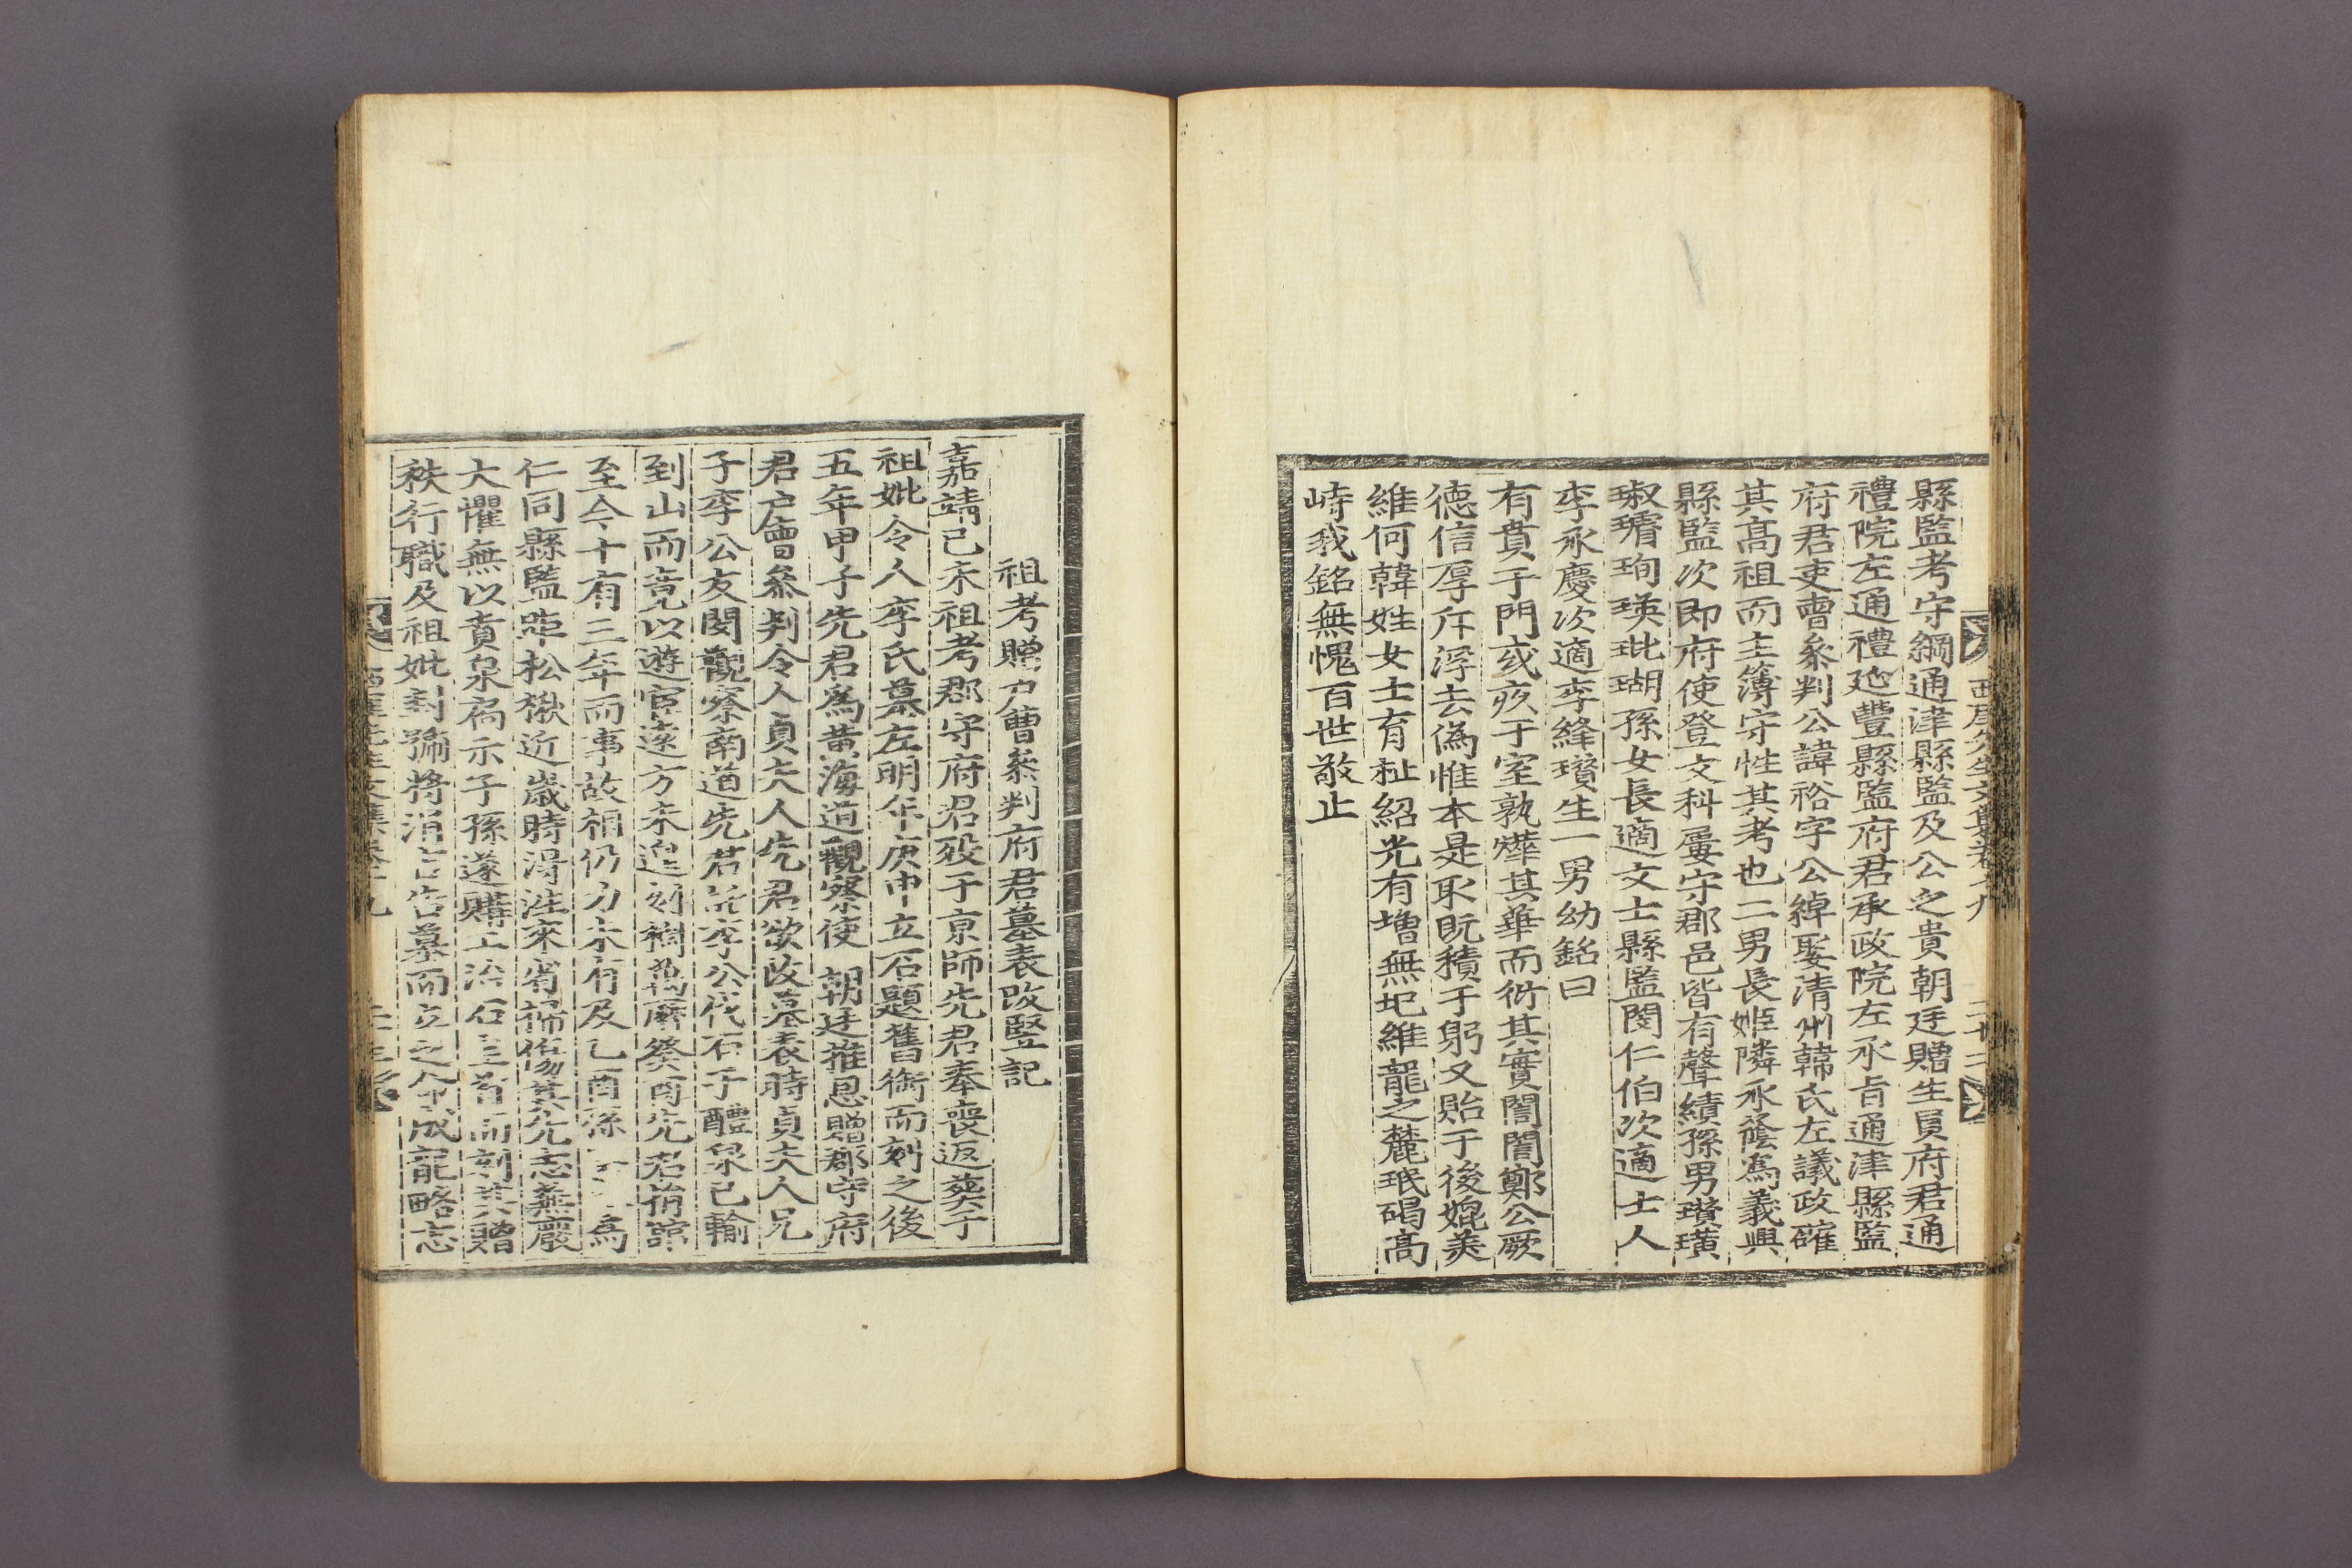 縣監考守綱通津縣監及公之貴朝廷贈生員府君通
禮院左通禮延豐縣監府君承政院左承旨通津縣監
府君吏曹叅判公諱裕字公綽娶清州韓氏左議政確
其高祖而主簿守性其考也二男長姬隣永蔭爲義興
縣監次即府使登文科屢守郡邑皆有聲績孫男瓚璜
琡瑨珣瑛玭瑚孫女長適文士縣監閔仁伯次適士人
李永慶次適李絳瓚生一男幼銘曰
有賁于門或疚于室孰燁其華而衍其實誾誾鄭公厥
德信厚斥浮去僞惟本是取旣積于躬又貽于後媲美
維何韓姓女士育祉紹光有增無圮維龍之麓珉碣高
峙我銘無愧百世敬止
西厓先生文集卷十九
祖考贈户曹叅判府君墓表改竪記
嘉靖己未祖考郡守府君殁于京師先君奉喪返葬于
祖妣令人李氏墓左明年庚申立石題舊銜而刻之後
五年甲子先君爲黄海道觀察使 朝廷推恩贈郡守府
君户曹叅判令人貞夫人先君欲改墓表時貞夫人兄
子李公友閔觀察南道先君託李公伐石于醴泉已輸
到山而竟以遊宦遠方未遑刻竪萬曆癸酉先君捐舘
至今十有三年而事故相仍力未有及乙酉孫 爲
仁同縣監距松楸近歲時得往來省掃傷其先志蕪廢
大懼無以賁泉扃示子孫遂購工治石 而刻其贈
秩行職及祖妣封號將涓吉告墓而立之 成龍略志